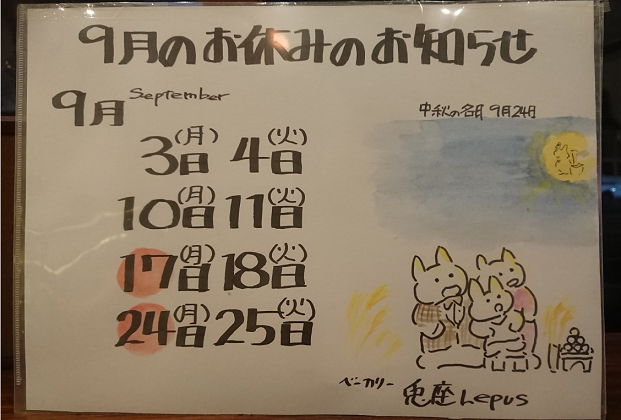 9月のお休みのお知らせ
9月 September
中秋の名月 9月24日
3日(月) 4日(火)
10日(月) 11日(火)
17日(月) 18日(火)
24日(月) 25日(火)
ベーカリー 兎座Lepus